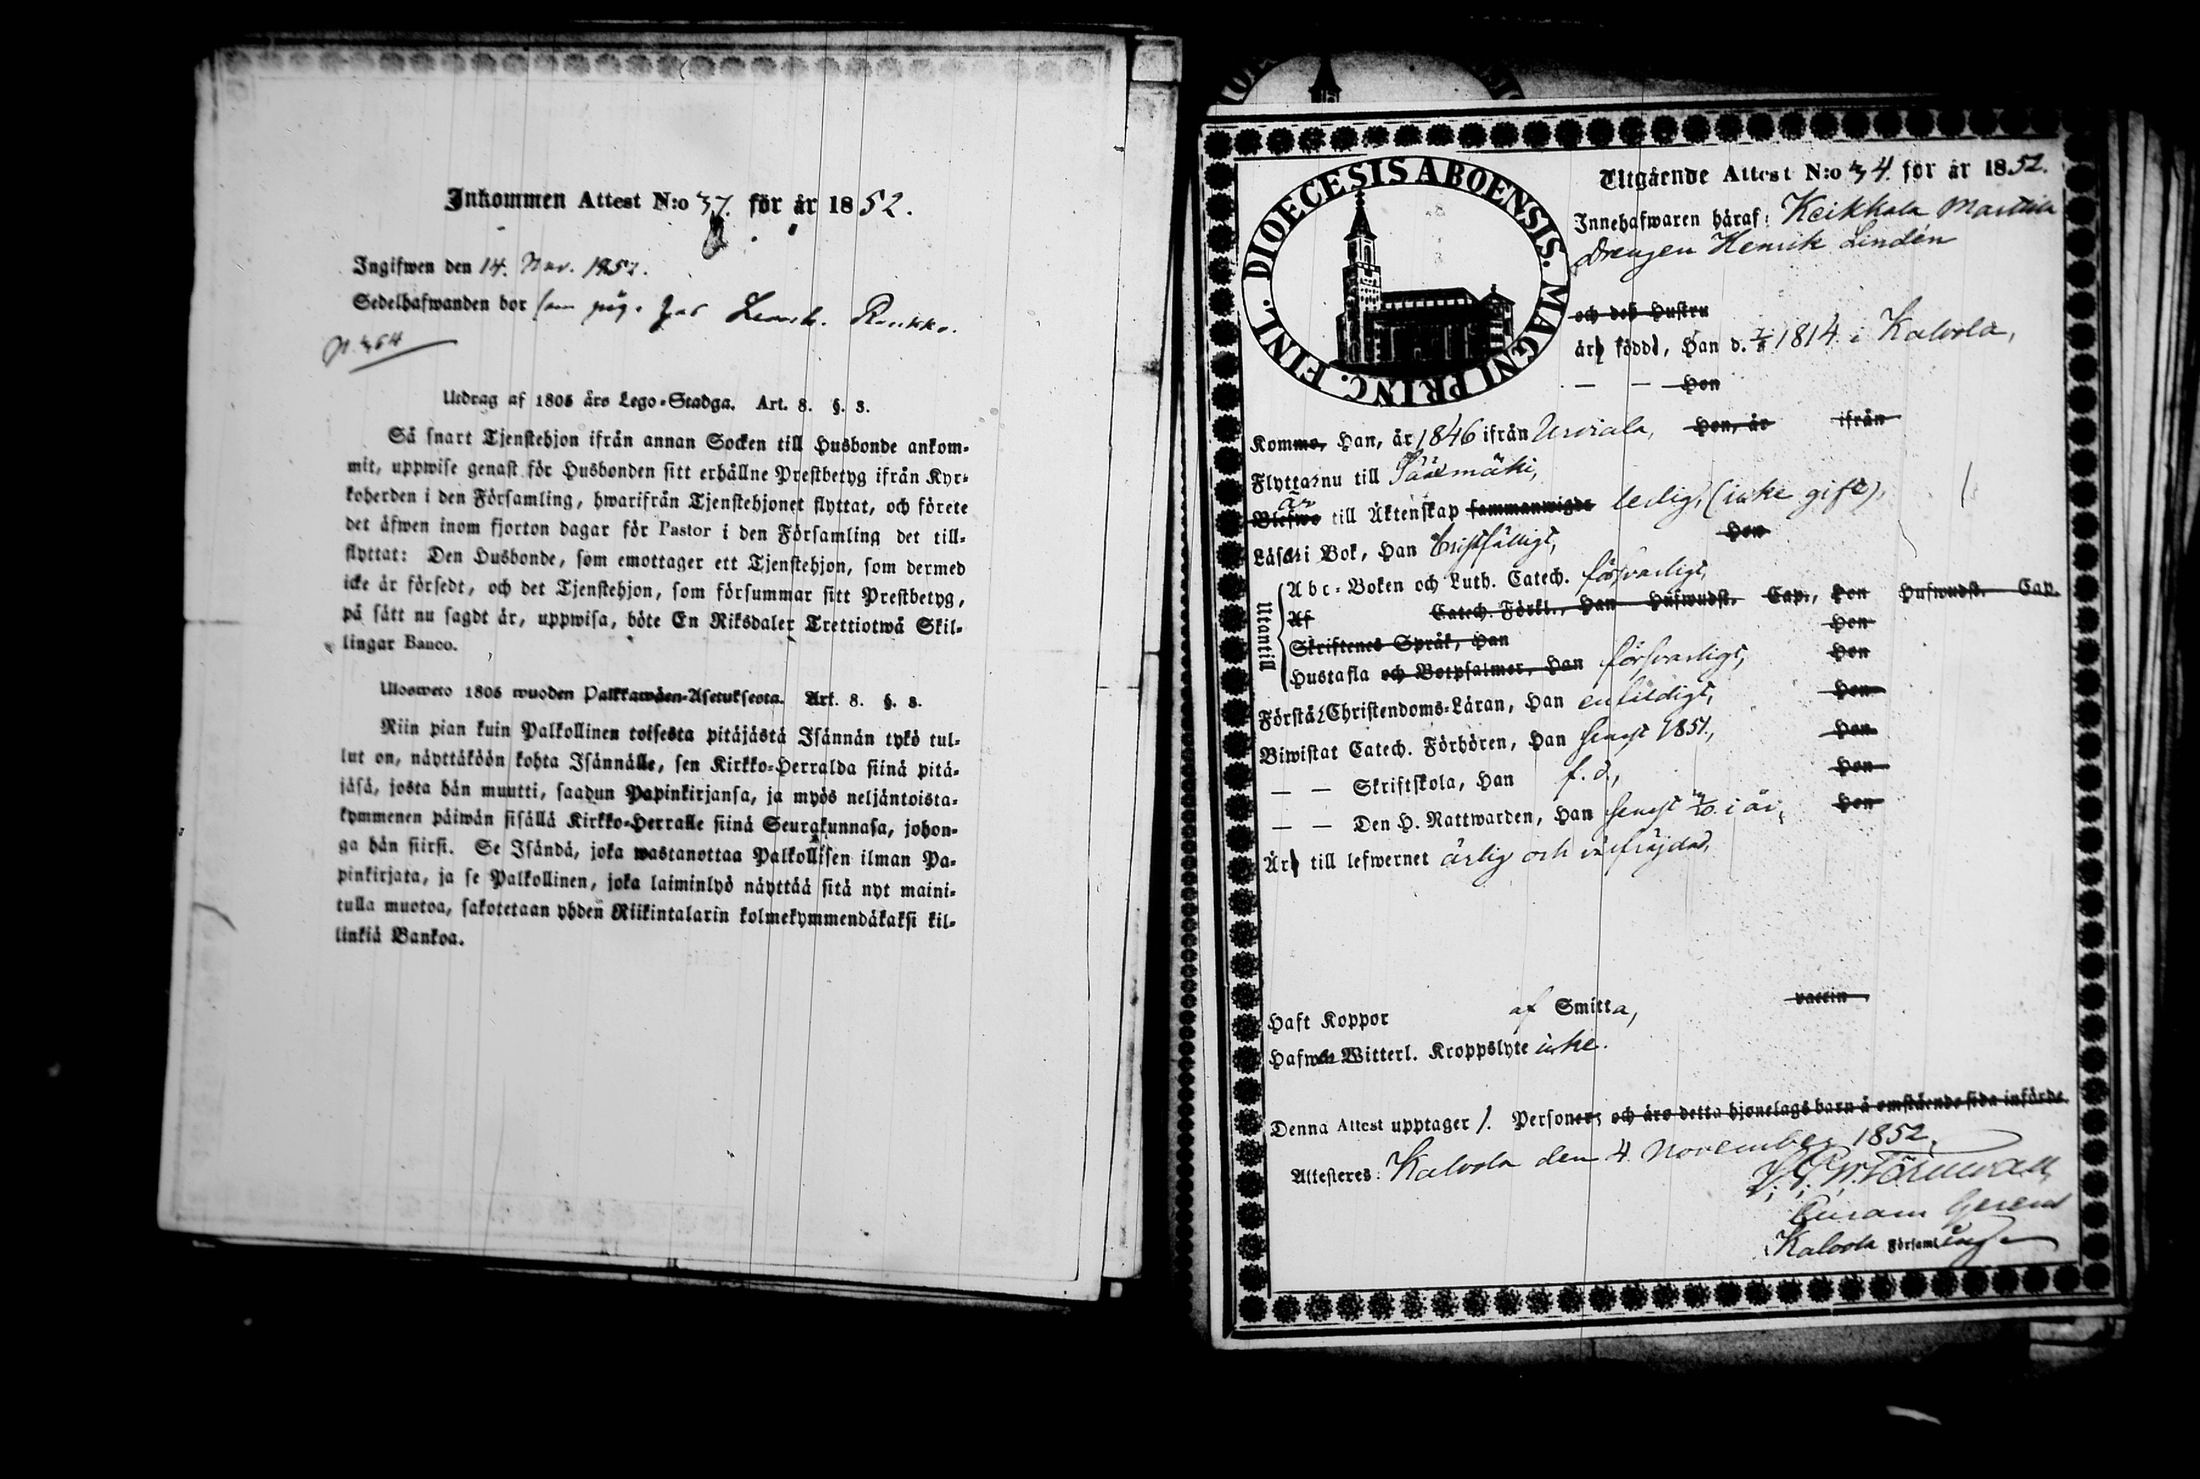 Inkommen Attest N:o 37. för år 1852.
Ingifwen den 14. Nov. 1852.
Sedelhafwanden bor
Utdrag af 1805 års Lego-Stadga. Art. 8. §. 3.
Så snart Tjenstehjon ifrån annan Socken till Husbonde ankom-
mit, uppwise genast för Husbonden sitt erhållne Prestbetyg ifrån Kyr-
koherden i den Församling, hwarifrån Tjenstehjonet flyttat, och förete
det äfwen inom fjorton dagar för Pastor i den Församling det till-
flyttat: Den Husbonde, som emottager ett Tjenstehjon, som dermed
icke är försedt, och det Tjenstehjon, som försummar sitt Prestbetyg,
på sätt nu sagdt är, uppwisa, böte En Riksdaler Trettiotwå Skil-
lingar Banco.
Ulosweto 1805 wuoden Palkkawäen-Asetuksesta. Art. 8. §. 3.
Niin pian kuin Palkollinen toisesta pitäjästä Isännän tykö tul-
lut on, näyttäköön kohta Isännälle, sen Kirkko-Herralda siinä pitä-
jäsä, josta hän muutti, saadun Papinkirjansa, ja myös neljäntoista-
kymmenen päiwän sisällä Kirkko-Herralle siinä Seurakunnasa, johon-
ga hän siirsi. Se Isändä, joka wastanottaa Palkollisen ilman Pa-
pinkirjata, ja se Palkollinen, joka laiminlyö näyttää sitä nyt maini-
tulla muotoa, sakotetaan yhden Riikintalarin kolmekymmendäkaksi kil-
linkiä Bankoa.
DIOECESIS ABOENSIS. MAGNI PRINC. FINL.
Utgående Attest N:o 34. för år 1852.
Innehafwaren häraf: Keikkala Marttila
Drengen Henrik Lindén
och deß Hustru
äro födde, Han d. 1814. i Kalvola,
— — Hon
Kommo, Han, år 1846 ifrån Urviala, Hon, år ifrån
Flyttar nu till Sääxmäki,
är
Blefwo till Äktenskap sammanwigde ledig, (icke gift),
Läser i Bok, Han bristfälligt, Hon
Utantill
Abc-Boken och Luth. Catech. försvarligt,
Af Catech. Förkl., Han Hufwudst. Cap., Hon Hufwudst. Cap.
Skriftenes Språk, Han Hon
Hustafla och Botpsalmer, Han försvarligt, Hon
Förstår Christendoms-Läran, Han enfaldigt, Hon
Biwistat Catech. Förhören, Han senast 1851., Hon
— — Skriftskola, Han s. d., Hon
— — Den H. Nattwarden, Han senast i år, Hon
Är till lefwernet ärlig och välfräjdad,
Haft Koppor af Smitta, vaccin
Hafwer Witterl. Kroppslyte icke.
Denna Attest upptager 1. Personer; och äro detta hjonelags barn å omstående sida införde.
Attesteres: Kalvola den 4 November 1852.
Curam Gerens
i Kalvola Församlinge